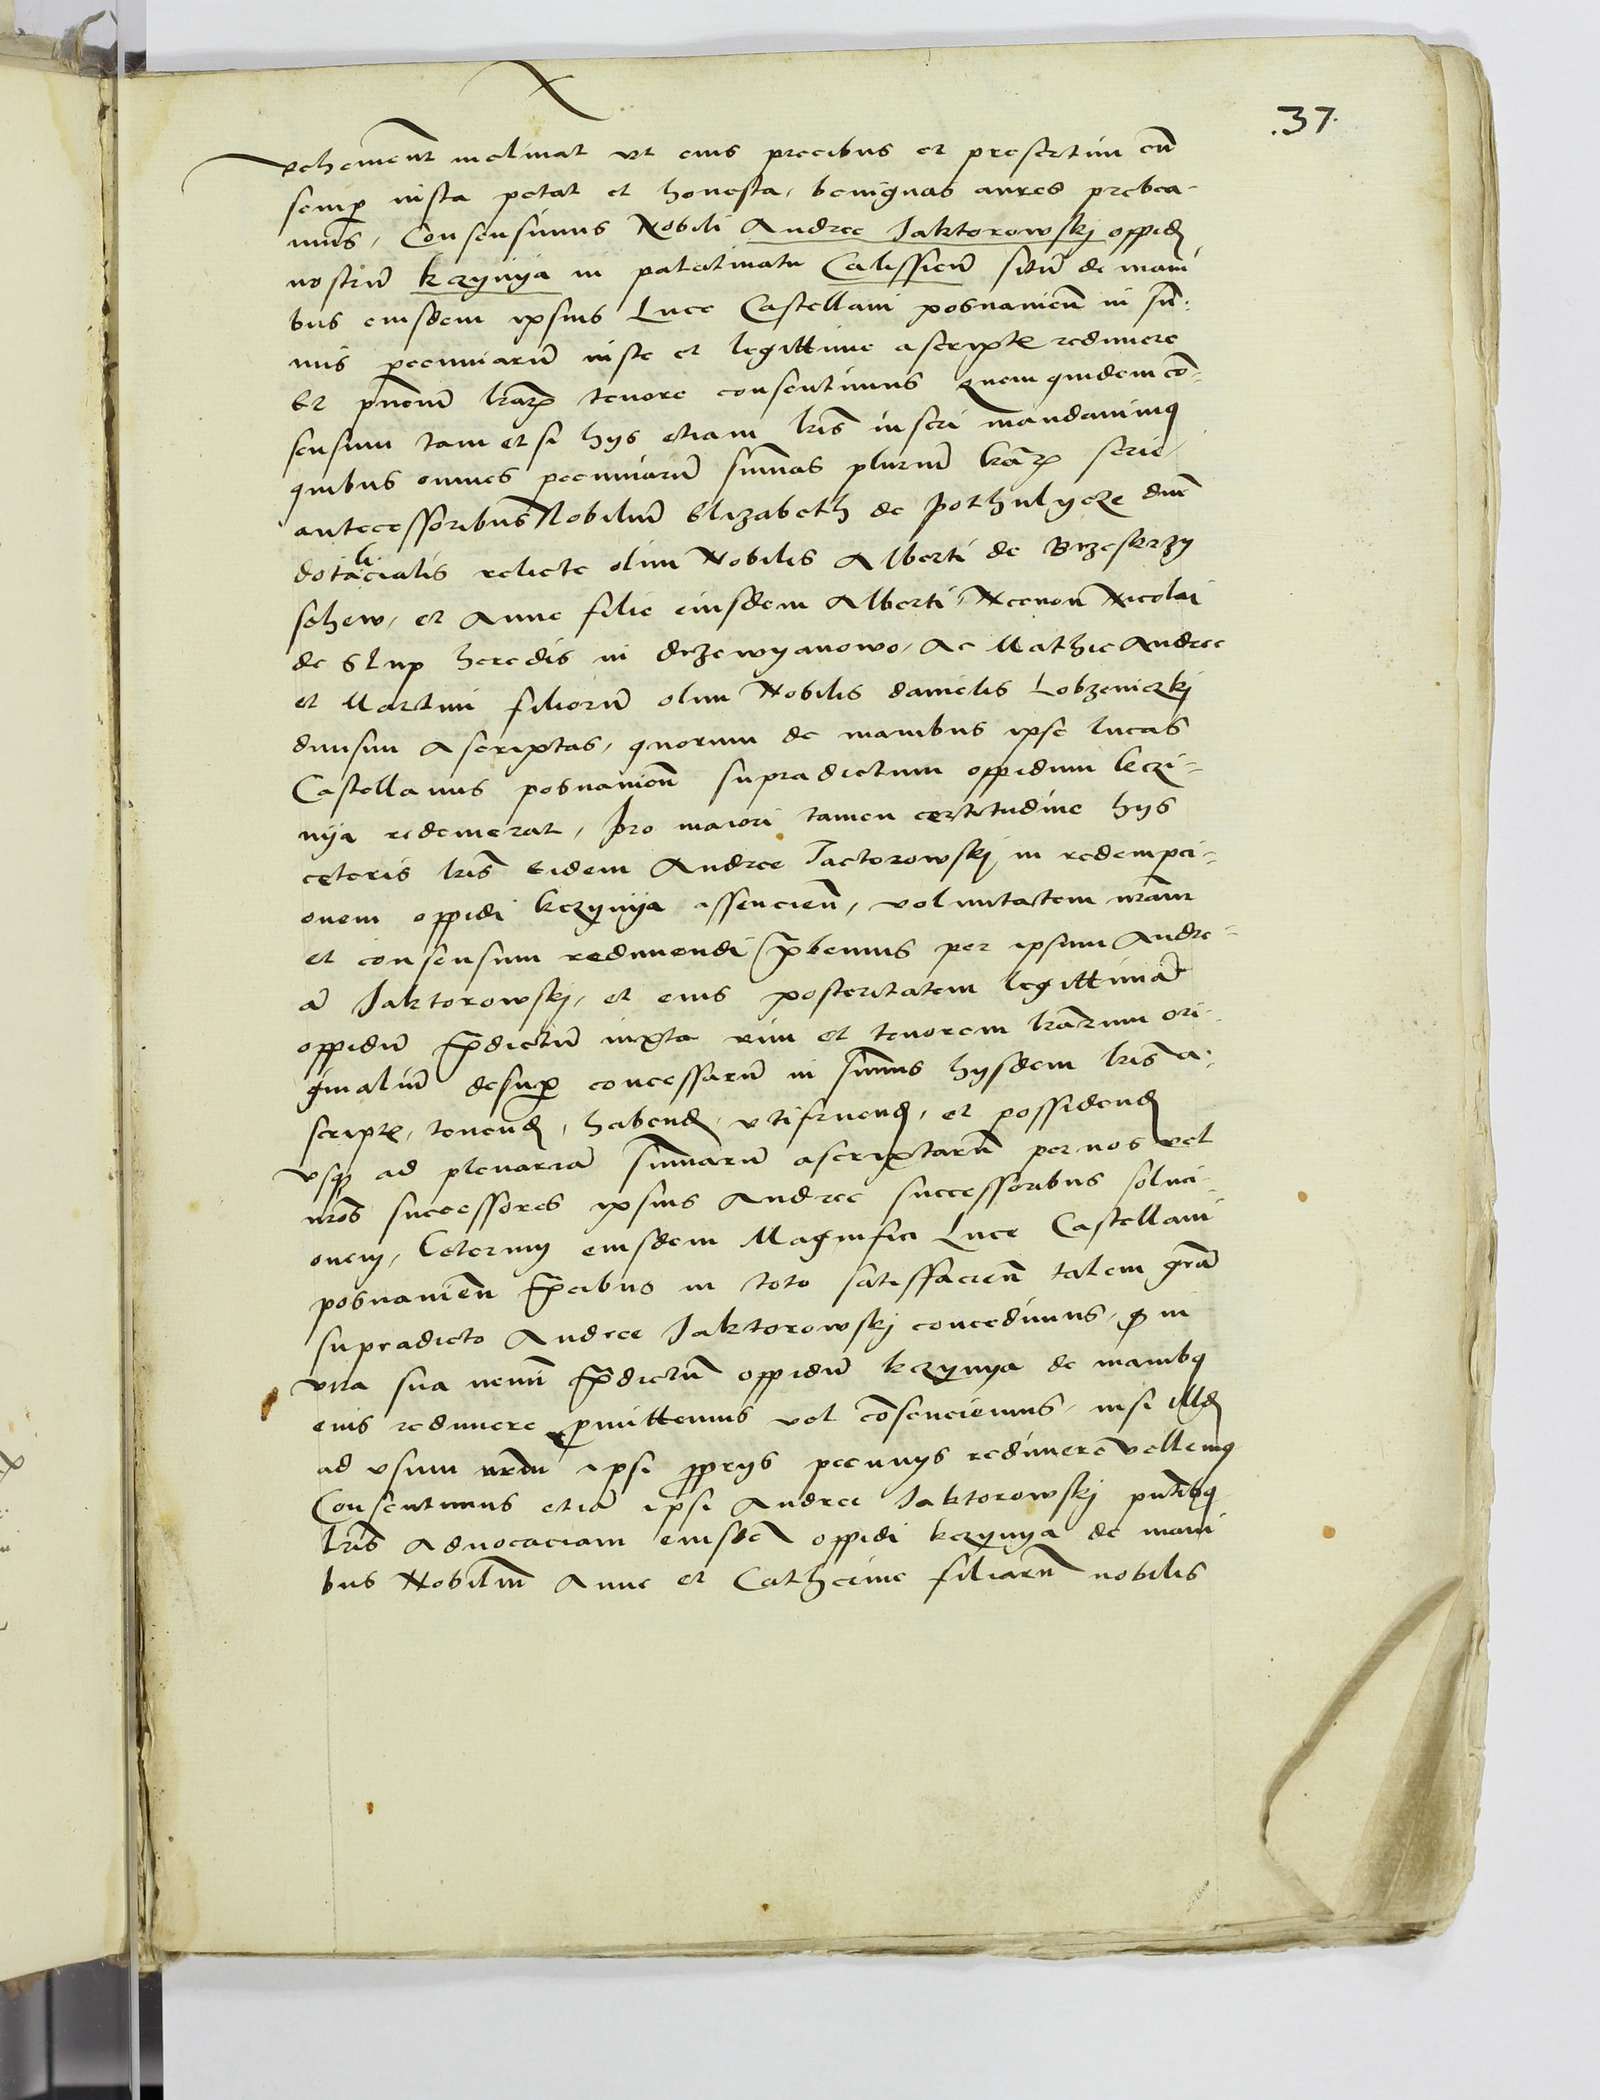 .37.
vehement inclinat vt eius precibus et presertim cu̅
semp iusta petat et honesta, benignas aures prebea-
mus, Consensimus Nobili Andree Jaktorowskj oppid
nostru̅ kczynya in palatinatu Calissien̅ situ̅ de mani
bus eiusdem ipsius Luce Castellani posnanien̅ in su̅-
mis pecuniaru̅ iuste et legittime ascript redimere
Et pn̅ciu̅ lrar̅ tenore consentimus quem quidem co̅-
sensum tam et si hys etiam lris̅ inseri mandauimq
quibus omnes pecuniaru̅ su̅mas pluriu̅ lrar̅ serie,
antecessoribus Nobiliu̅ Elizabeth de Pothulycze du̅
dotalicialis relicte olim Nobilis Alberti de Brzeskrzy
schew, et Anne filie eiusdem Alberti, Necnon Nicolai
de Slup heredis in drzewyanowo, Ac Mathie Andree
et Martini filioru̅ olim Nobilis danielis Lobzeniczkj
diuisim Ascriptas, quorum de manibus ipse lucas
Castellanus posnanien̅ supradictum oppidum kczi-
nya redemerat, Pro maiori tamen certitudine hys
ceteris lris̅ eidem Andree Jactorowskj in redempci-
onem oppidi kczynya assencien̅, voluntatem nram̅
et consensum redimendi p̅bemus per ipsum Andre-
a̅ Jaktorowskj, et eius posteritatem legittima̅
oppidu̅ p̅dictu̅ iuxta vim et tenorem lrarum̅ ori-
ginaliu̅ desup concessaru̅ in su̅mis hysdem lris̅ a-
script, tenend, habend, vtifruend, et possidend
vsq ad plenaria̅ su̅maru̅ ascriptaru̅ per nos vel
nros̅ successores ipsius Andree successoribus soluci-
onem, Ceterum eiusdem Magnifici Luce Castellani
posnanien̅ p̅cibus in toto satisfacien̅ talem gra̅m
supradicto Andree Jaktorowskj concedimus, q in
vita sua nemi̅ p̅dictu̅ oppidu̅ kczynya de manibq
eius redimere pmittemus vel co̅senciemus, nisi illud
ad vsum nrm̅ ipsi pprys pecunys redimere vellemq
Consentimus etia̅ ipsi Andree Jaktorowskj pn̅tibq
lris̅ Aduocaciam eiusde̅ oppidi kczynya de mani
bus Nobiliu̅ Anne et Catherine filiaru̅ nobilis